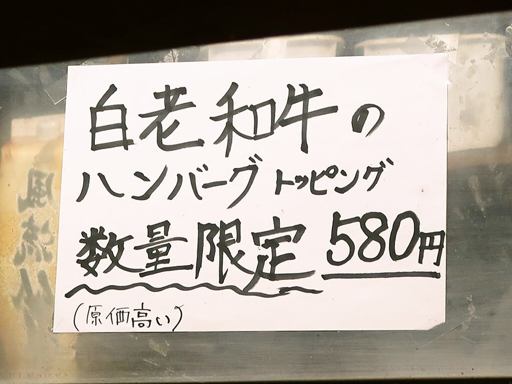 白老和牛の
ハンバーグトッピング
数量限定 580円
(原価高い)
風流